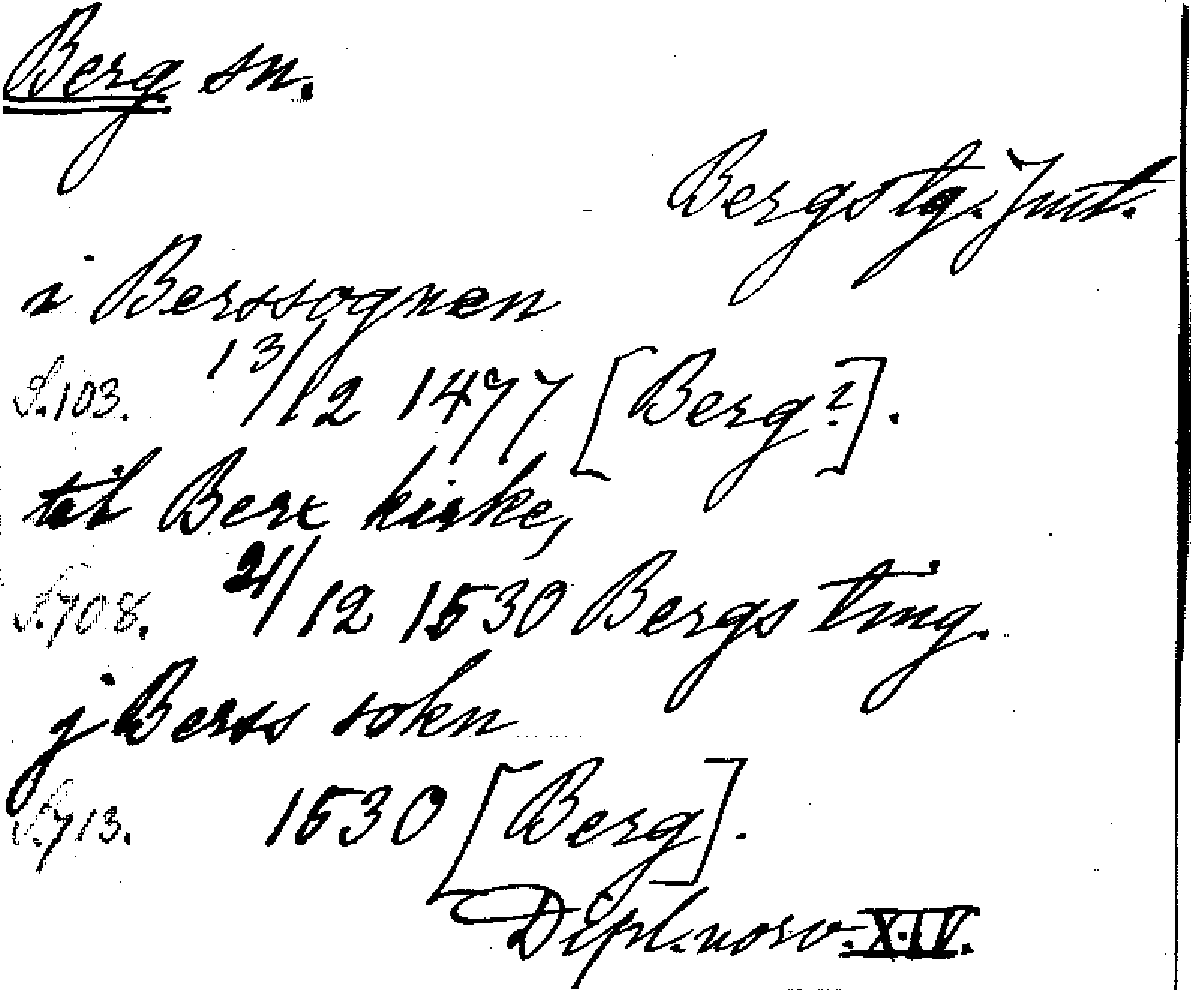 Berg sn.
Bergs tg. Jmt.
i Berssognen
S. 103. 13/12 1477 [Berg?].
til Berx kirke,
S. 708. 21/12 1530 Bergs ting.
j Berss sokn
S. 713. 1530 [Berg].
Dipl. norv. XIV.